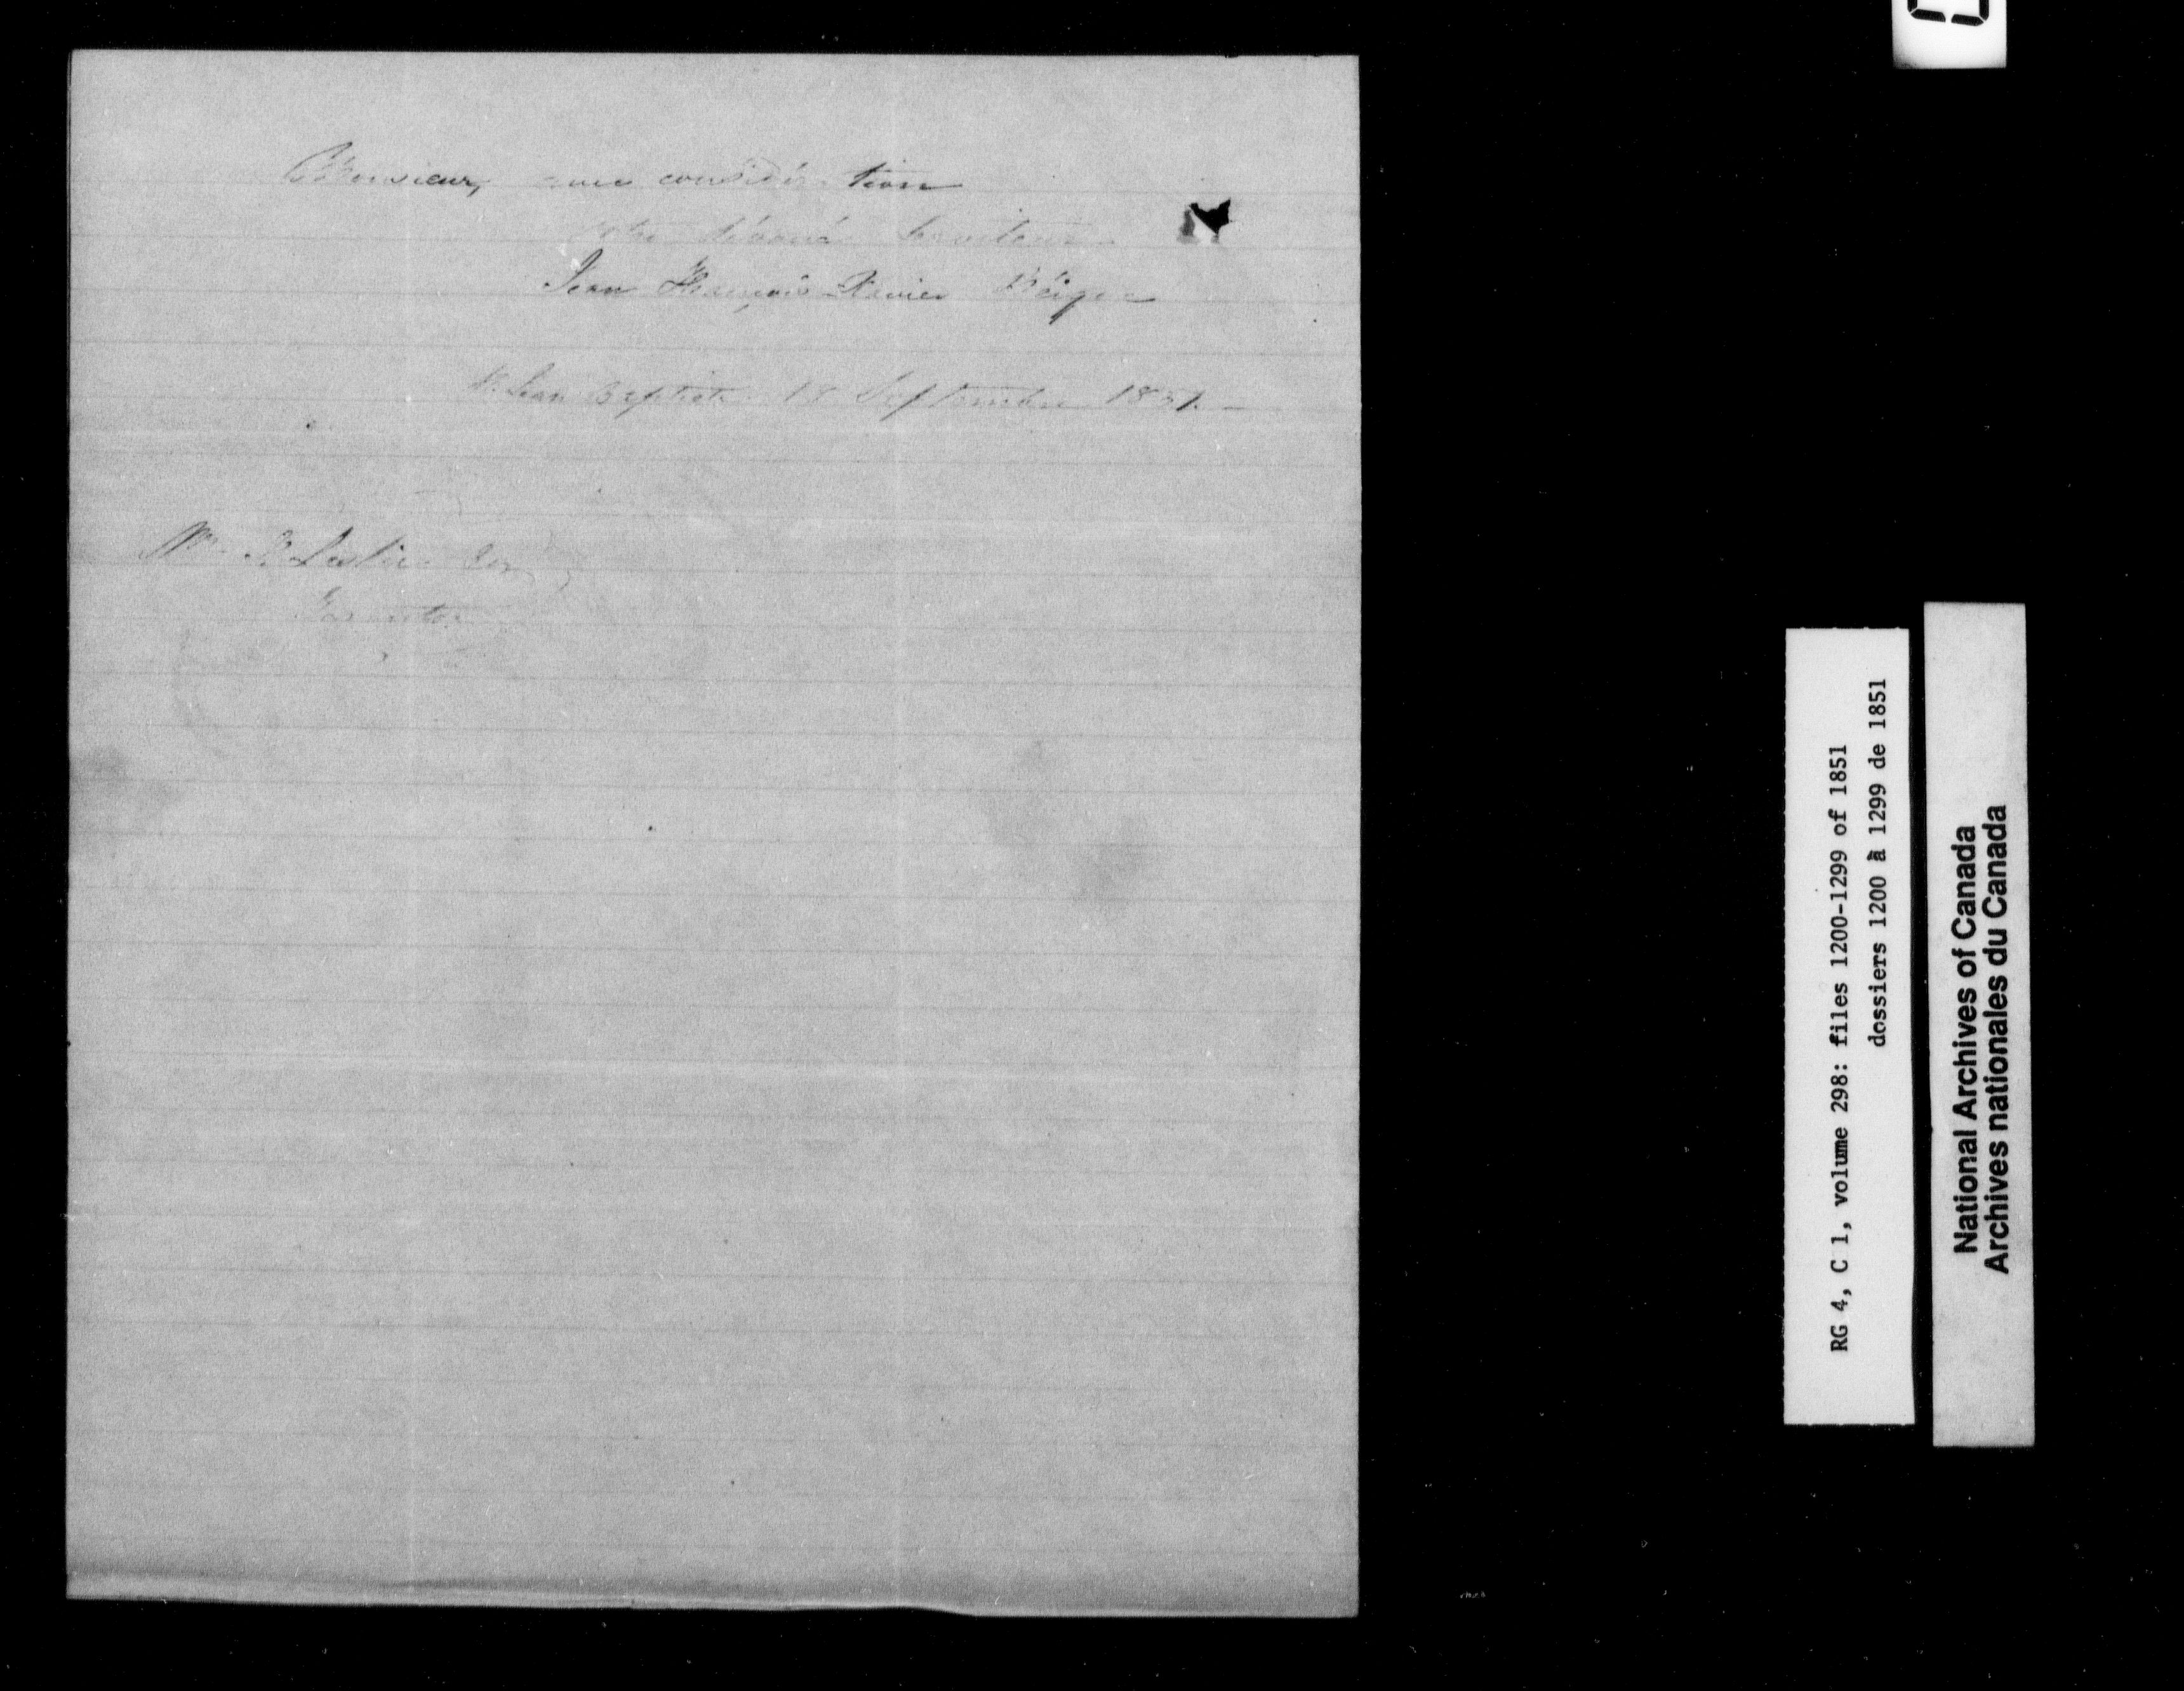 Monsieur, avec considération
votre dévoué serviteur
Jean François-Xavier
St. Jean Baptiste 18 Septembre 1851.
Leslie
Toronto
RG 4, C 1, volume 298: files 1200-1299 of 1851
dossiers 1200 à 1299 de 1851
National Archives of Canada
Archives nationales du Canada